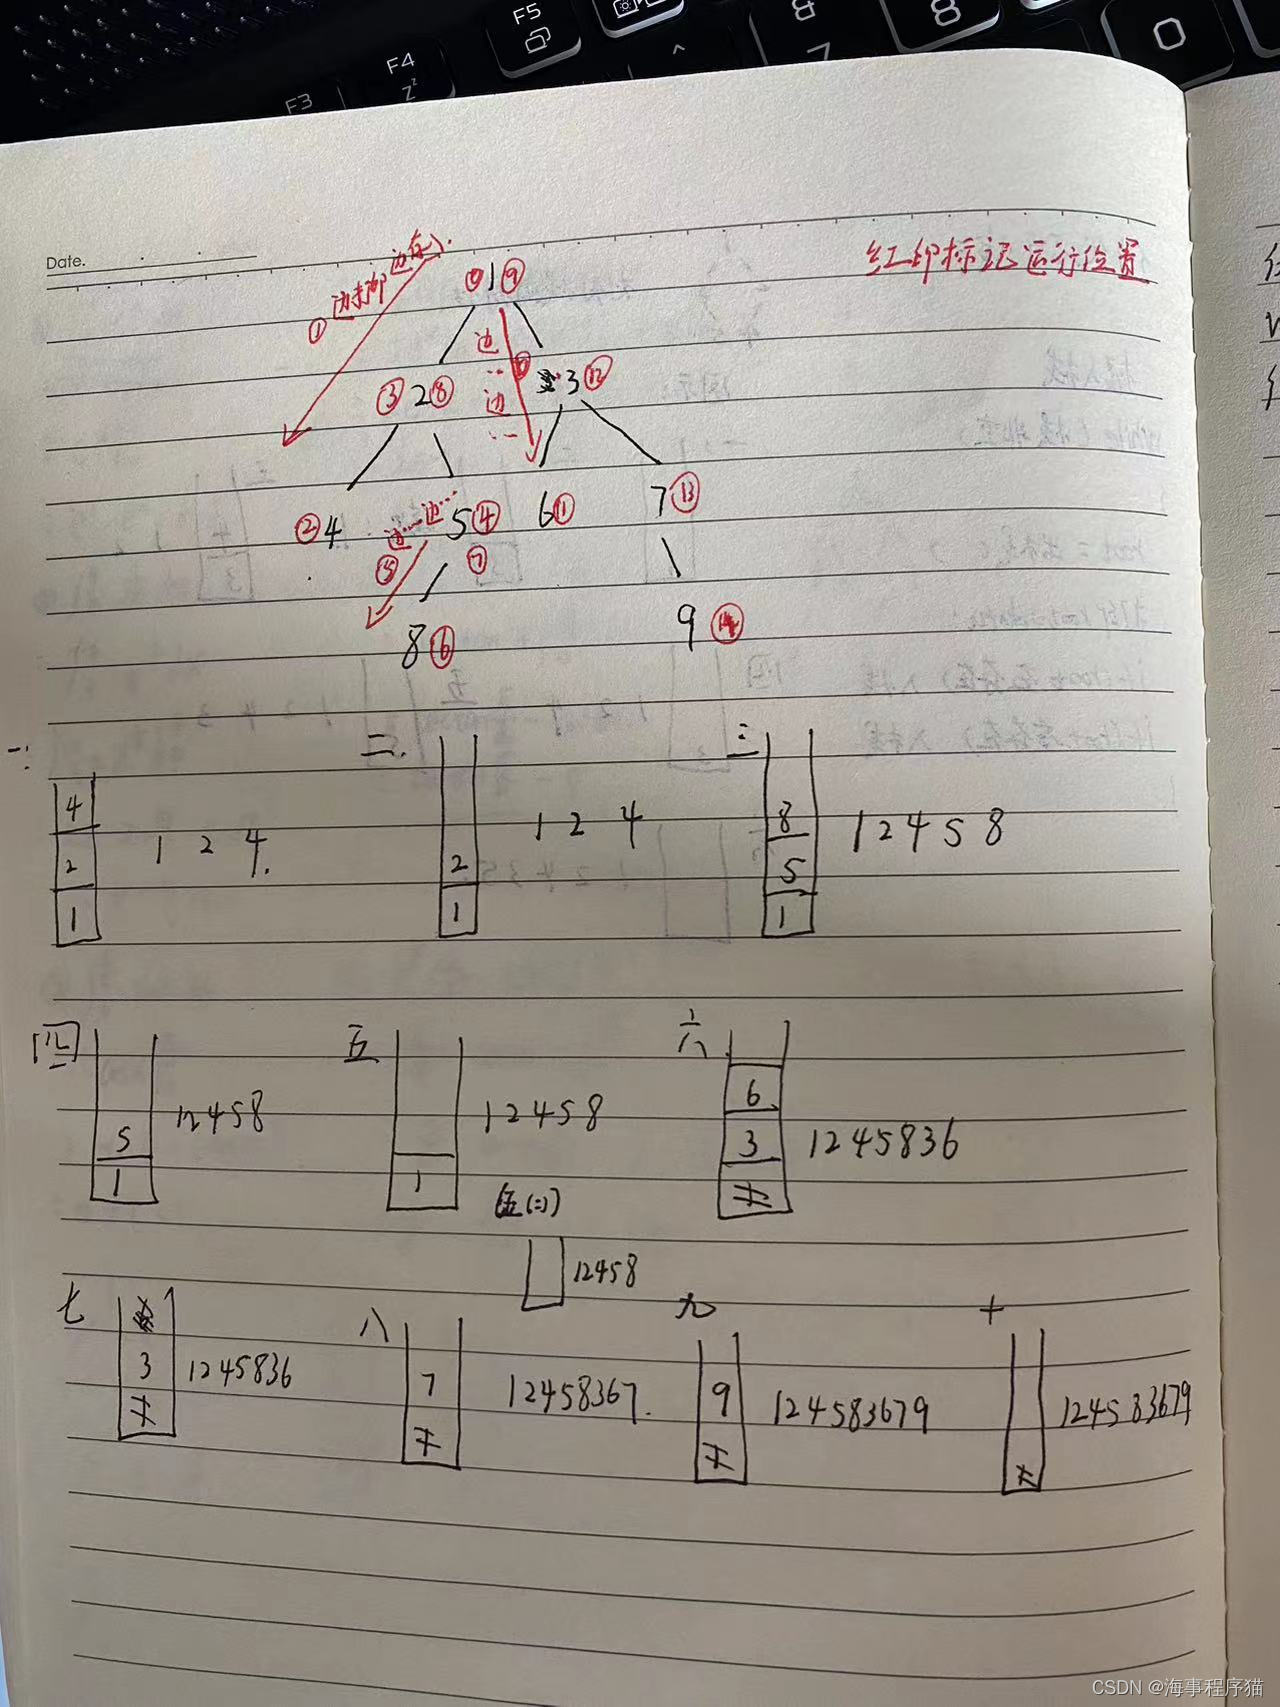 F5
F4
F3
Date.
红印标记运行位置
① 边打印边存入.
1 ⑨
边…
边…
③ 2 ⑧
3 ⑫
② 4
边…边…
5 ④
6 ⑪
7 ⑬
⑤
⑦
8 ⑥
9 ⑭
一:
4
2
1
1 2 4.
二.
2
1
1 2 4
三
8
5
1
1 2 4 5 8
四
5
1
12458
五
1
12458
六
6
3
1245836
五(二)
12458
七
3
1245836
八
7
12458367.
九
9
124583679
十
124583679
CSDN @海事程序猫